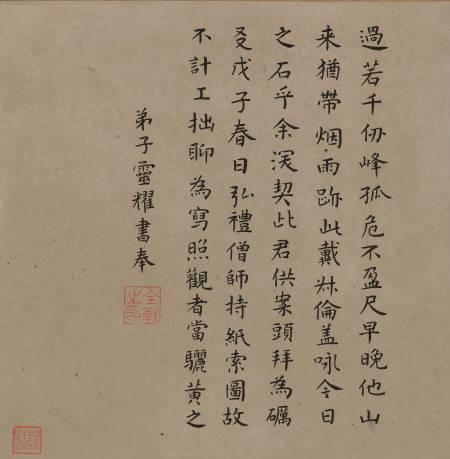 過若千仞峰孤危不盈尺早晚他山
来猶帶烟雨跡此戴叔倫盖咏今日
之石乎余深契此君供案頭拜為礪
戊子春日弘禮僧師持紙索圖故
不計工拙聊為寫照觀者當驪黄之
弟子靈耀書奉